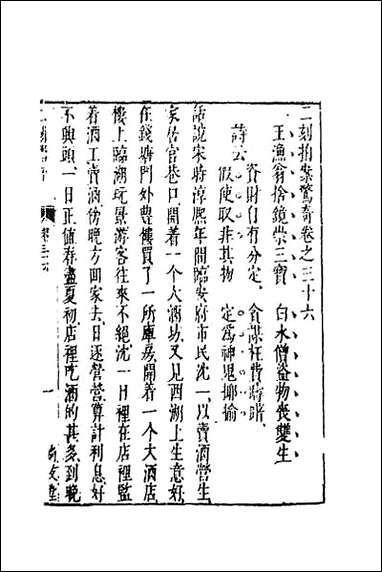 二刻拍案驚奇卷之三十六
王漁翁捨鏡崇三寶　白水僧盜物喪雙生
詩云
資財自有分定　貪謀枉費踌躇
假使取非其物　定爲神鬼揶揄
話說宋時淳熙年間臨安府市民沈一以賣酒營生
家居官巷口開着一個大酒坊又見西湖上生意好
在錢塘門外豊樓買了一所庫房開着一個大酒店
樓上臨湖玩景游客往來不絕沈一日裡在店裡監
着酒工賣酒傍晚方回家去日逐營營算計利息好
不興頭一日正值春盡夏初店裡吃酒的甚多到晚
一
尚友堂